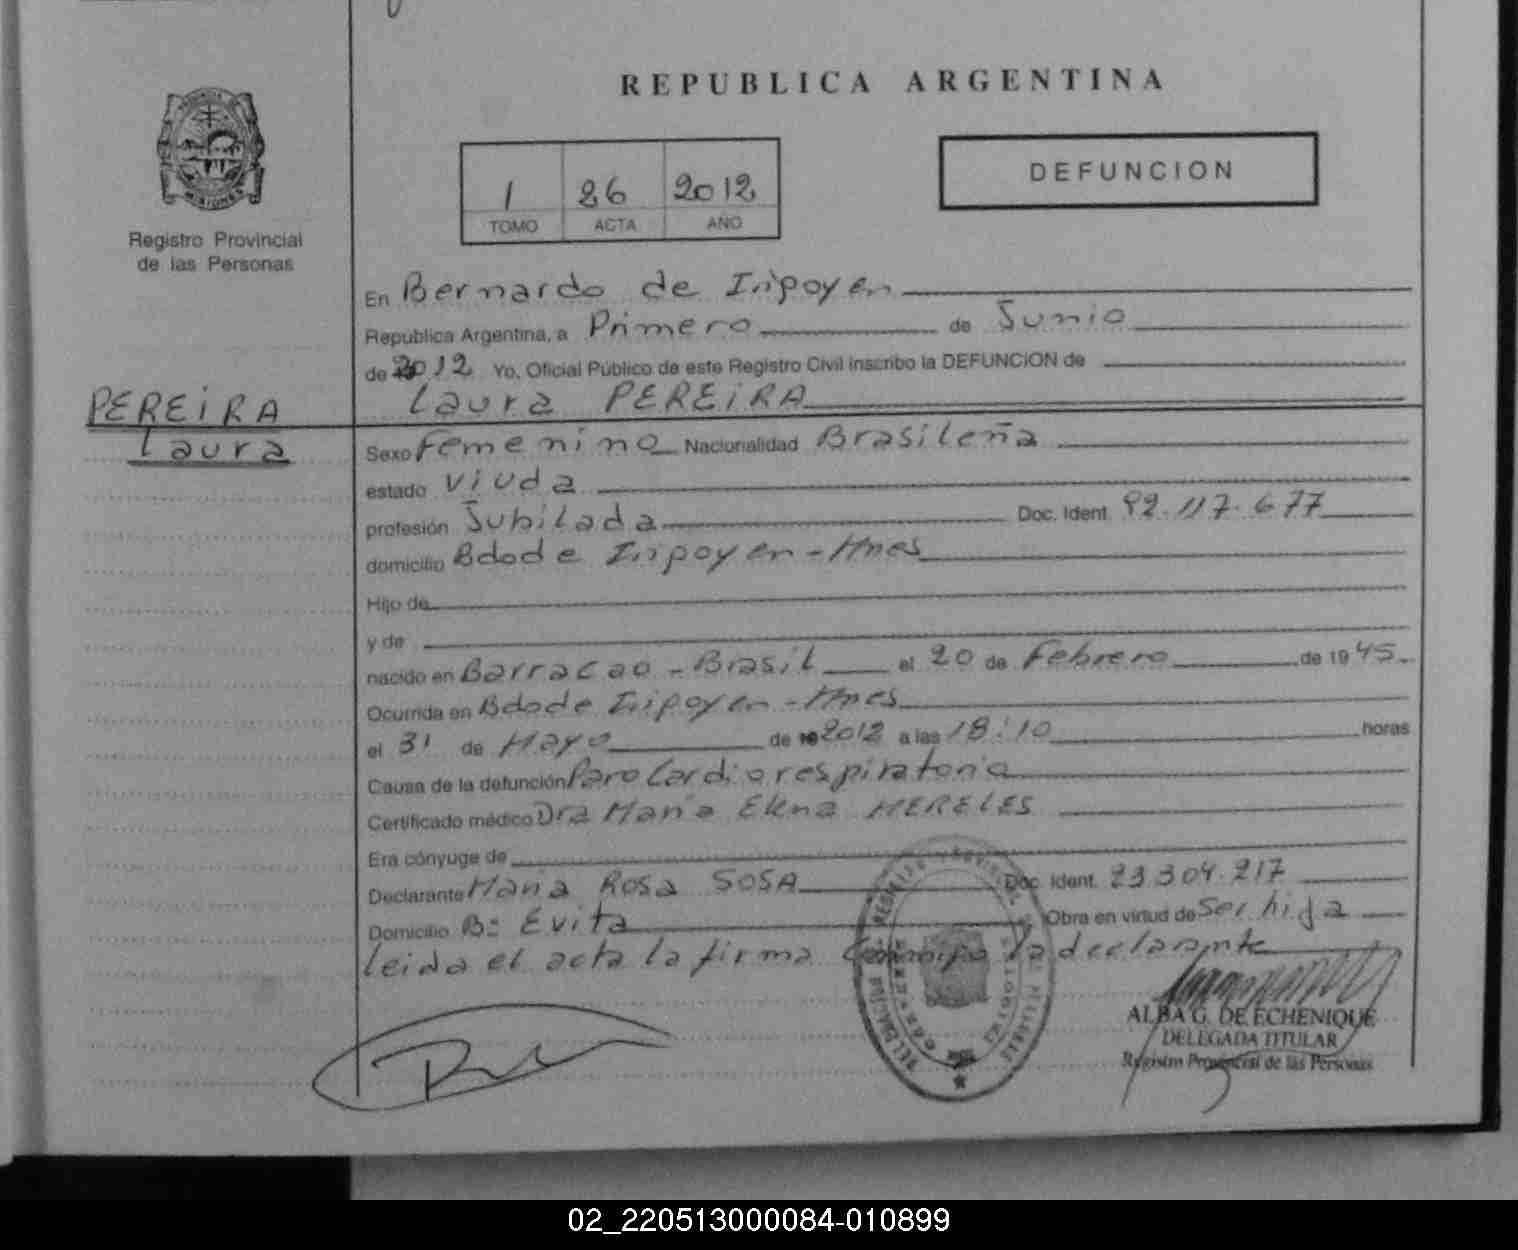 REPUBLICA ARGENTINA
1 86 2012
TOMO ACTA AÑO
DEFUNCION
MISIONES
Registro Provincial
de las Personas
En Bernardo de Iripoyen
Republica Argentina, a Primero de Junio
de 2012 Yo, Oficial Público de este Registro Civil inscribo la DEFUNCION de
Laura PEREiRA
PEREiRA
Laura
Sexo Femenino Nacionalidad Brasileña
estado Viuda
profesión Jubilada Doc. Ident. 92.117.677
domicilio Bdo de Iripoyen - Mnes
Hijo de
y de
nacido en Barracao - Brasil el 20 de Febrero de 1945
Ocurrida en Bdo de Iripoyen - Mnes
el 31 de Mayo de 2012 a las 18:10 horas
Causa de la defunción Paro Cardiorespiratorio
Certificado médico Dra Maria Elena MERELES
Era cónyuge de
Declarante Maria Rosa SOSA Doc. Ident. 23.304.217
Domicilio B: Evita Obra en virtud de Ser hija
leida el acta la firma la declarante
ALBA G. DE ECHENIQUE
DELEGADA TITULAR
Registro Provincial de las Personas
02_220513000084-010899